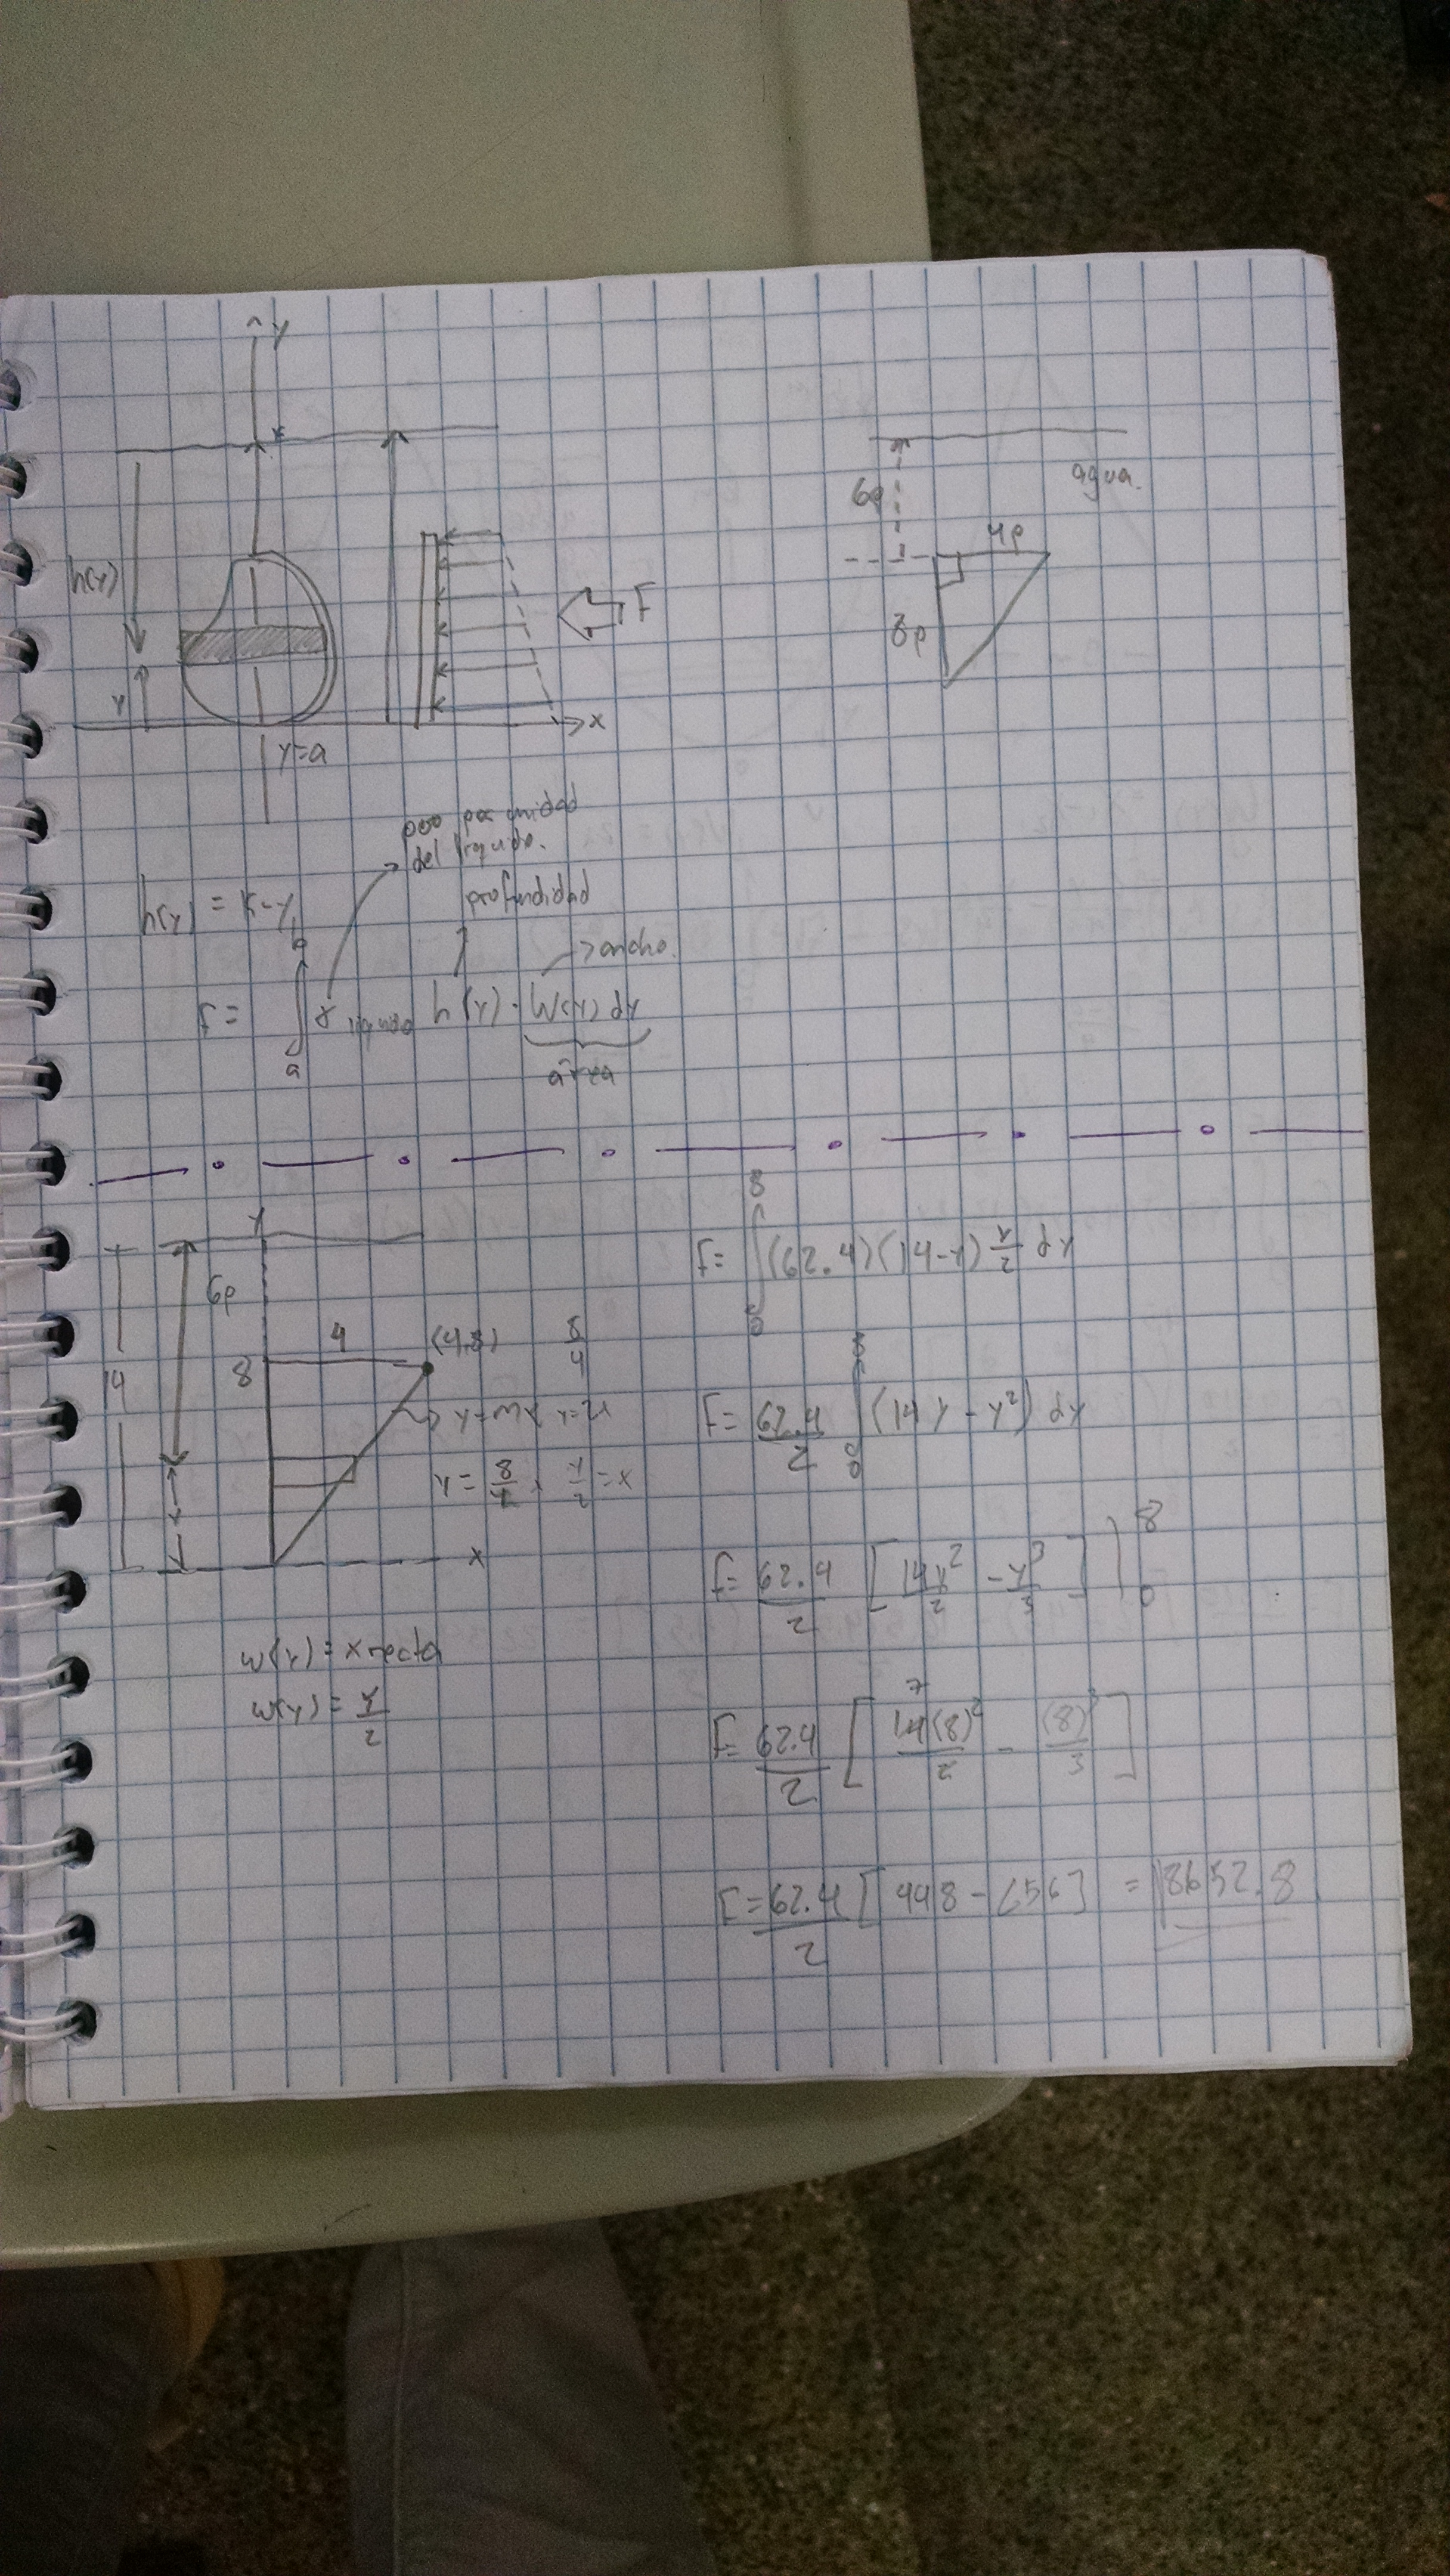 y
k
h(y)
y
F
x
y=a
6p
agua.
4p
8p
peso por unidad
del líquido.
profundidad
h(y) = k-y
ancho.
F= ∫ₐᵇ γ líquido h(y) · W(y) dy
área
y
6p
14
8
4
(4,8)
8/4
y=mx y=2x
y = 8/4 x y/2 = x
y
x
w(y) = x recta
w(y) = y/2
F= ∫₀⁸ (62.4)(14-y) y/2 dy
F= 62.4/2 ∫₀⁸ (14y - y²) dy
F= 62.4/2 [14y²/2 - y³/3] |₀⁸
7
F= 62.4/2 [14(8)²/2 - (8)³/3]
F= 62.4/2 [448 - ] = 8652.8